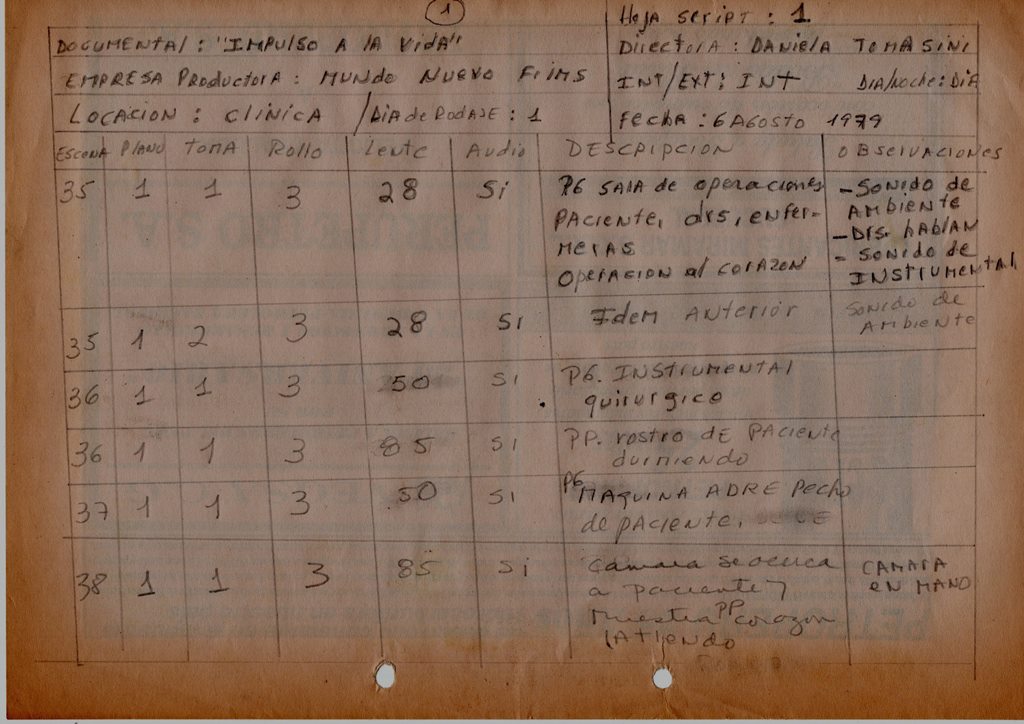 1
Hoja script : 1
DOCUMENTAL : "IMPULSO A LA VIDA"
Directora : DANIELA TOMASINI
EMPRESA Productora : MUNDO NUEVO FilMS
INT/EXT : INT DIA/NOCHE : DIA
LOCACION : CLINICA / DIA de RODAJE : 1
FECHA : 6 AGOSTO 1979
ESCENA PlANO TOMA Rollo Lente Audio DESCRIPCION OBSERVACIONES
35 1 1 3 28 Si PG SALA de operaciones - SONIDO de
PACIENTE, drs, enfer- AMBIENTE
MERAS - Drs. hABLAN
OPERACION al CORAZON - SONIDO de
INSTRUMENTAL
35 1 2 3 28 Si Idem ANTERIOR SONIDO de
AMBIENTE
36 1 1 3 50 Si PG. INSTRUMENTAL
quirurgico
36 1 1 3 85 Si PP. rostro DE PACIENTE
durmiendo
37 1 1 3 50 Si PG MAQUINA ABRE pecho
de PACIENTE.
38 1 1 3 85 Si Cámara se acerca CAMARA
a paciente y EN MANO
Muestra PP corazon
lATIENDO